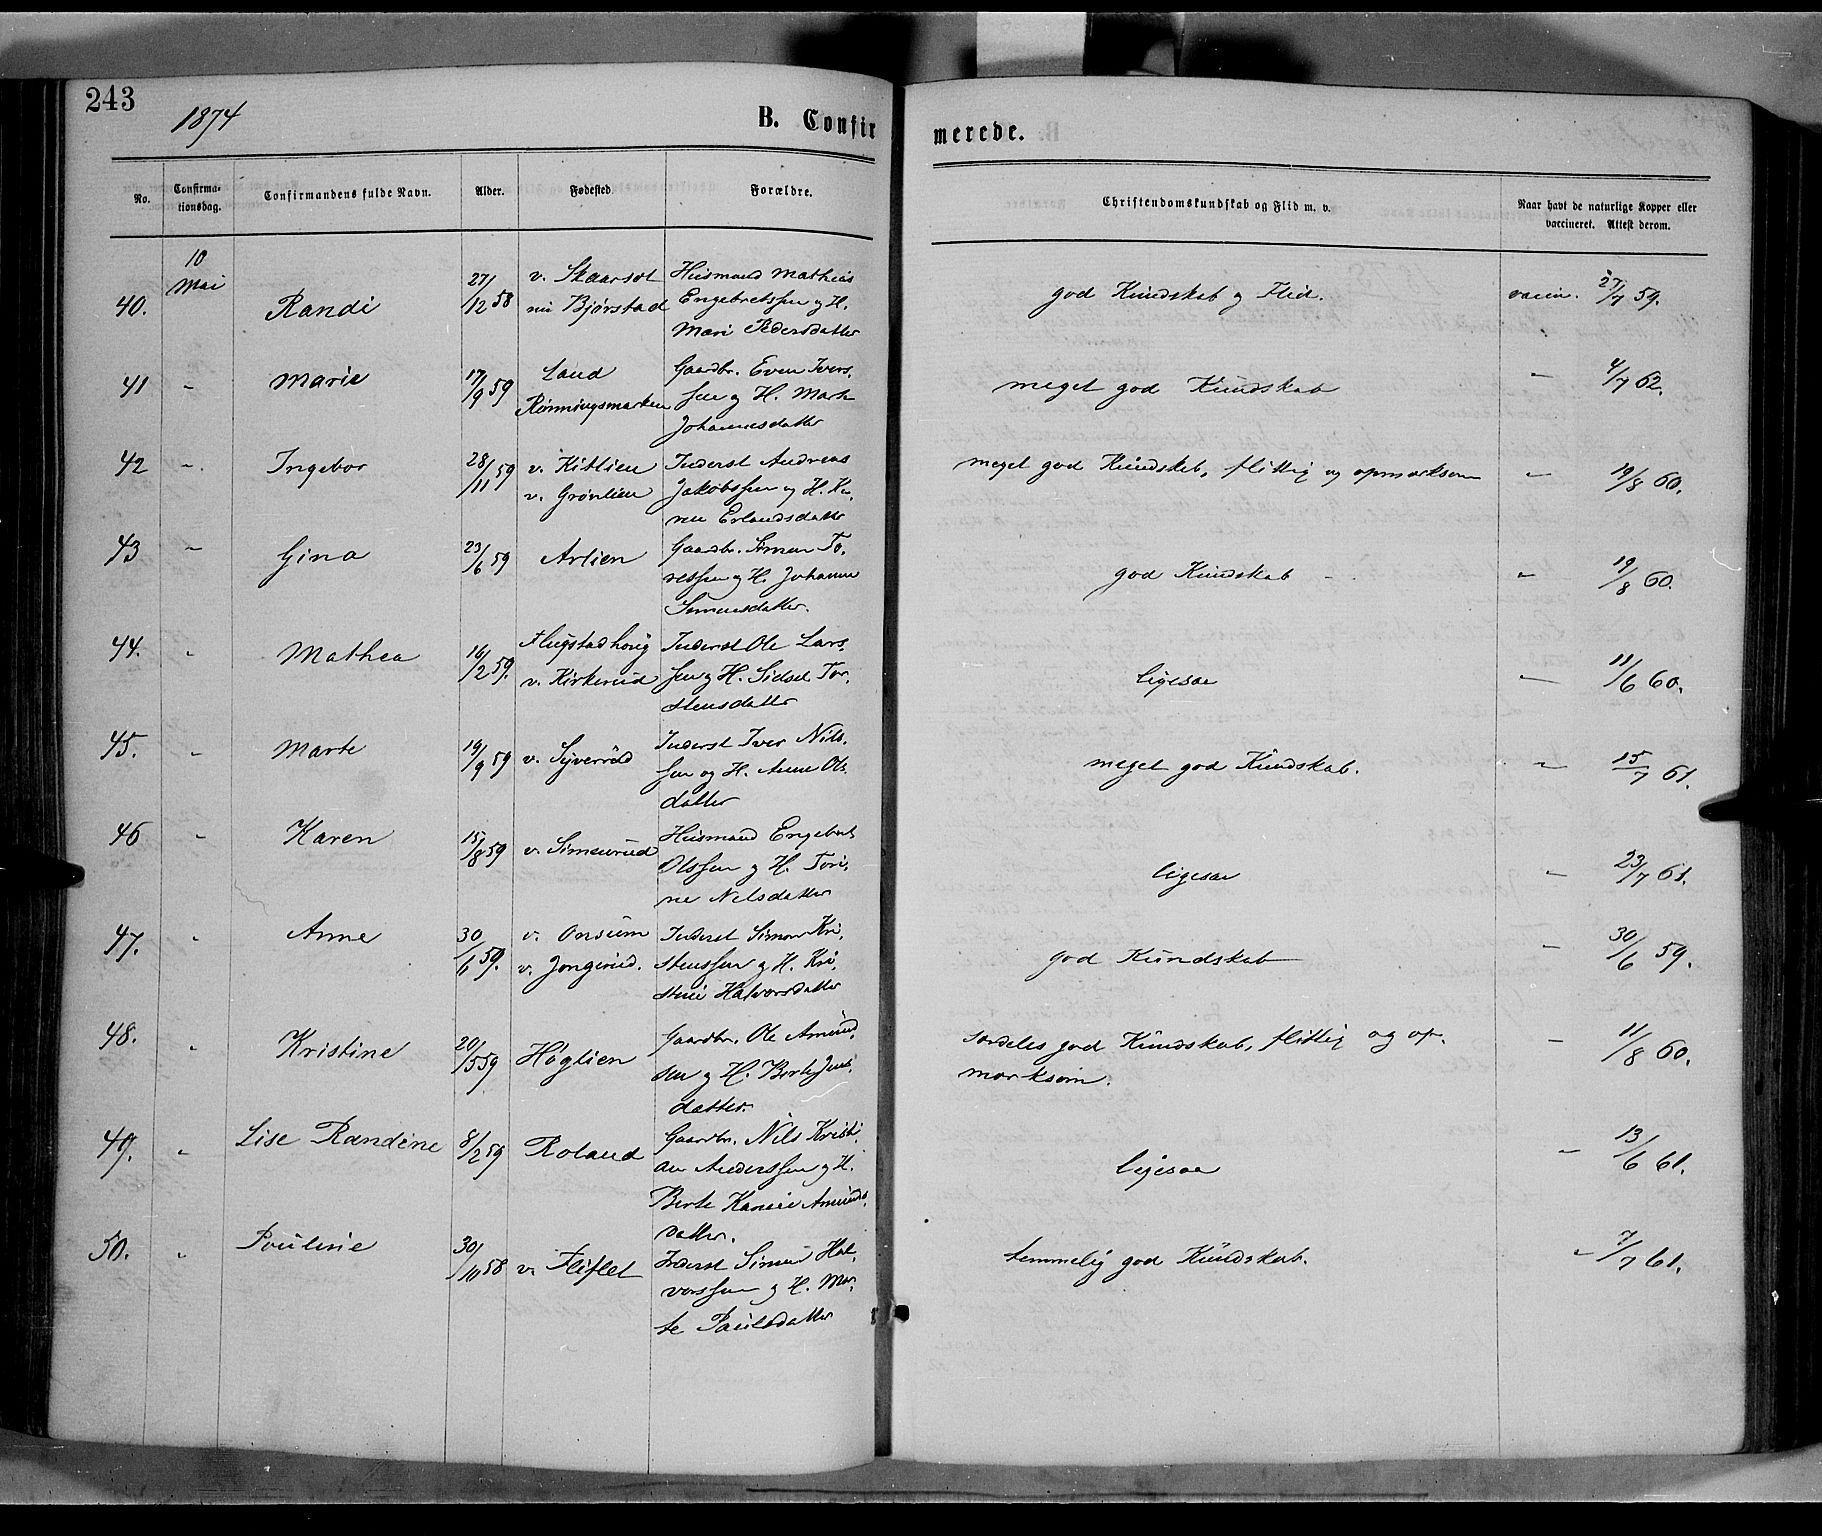 243
1874
B. Confirmerede.
No.
Confirma-
tionsdag.
Confirmandens fulde Navn.
Alder.
Fødested.
Forældre.
Christendomskundskab og Flid m. v.
Naar havt de naturlige Kopper eller
vaccineret. Attest derom.
10
Mai
40.
Randi
27/12 58
v. Skaarset
nu Bjørstad
Husmand Mathias
Engebretssen og H.
Mari Pedersdatter
god Kundskab og Flid.
vaccin. 27/7 59.
41
"
Marie
17/9 59
Land
Rønningsmarken
Gaardbr. Even Ivers-
sen og H. Marte
Johannesdatter
meget god Kundskab
" 4/7 62.
42
"
Ingebor
28/11 59
v. Kitlien
v. Grønlien
Inderst Andreas
Jakobssen og H. Ka-
ren Erlandsdatter
meget god Kundskab, flittig og opmærksom
" 19/8 60.
43
"
Gina
23/6 59
Arlien
Gaardbr. Simen To-
ressen og H. Johanne
Simensdatter.
god Kundskab
" 19/8 60.
44.
"
Mathea
16/2 59.
Flugstadhoug
v. Kirkerud
Inderst Ole Lars-
sen og H. Sidsel Tor-
stensdatter
ligesaa
" 11/6 60.
45.
"
Marte
19/9 59
v. Syverrud
Inderst Iver Nils-
sen og H. Anne Ols-
datter
meget god Kundskab.
" 15/7 61.
46
"
Karen
15/8 59
v. Simenrud
Husmand Engebret
Olssen og H. Tori-
ne Nilsdatter
ligesaa
" 23/7 61.
47.
"
Anne
30/1 59.
v. Onsum
v. Jongerud.
Inderst Simon Kri-
stenssen og H. Kri-
stine Halvorsdatter
god Kundskab
" 30/6 59.
48.
"
Kristine
20/5 59
Høglien
Gaardbr. Ole Amund-
sen og H. Berte Jens-
datter.
særdeles god Kundskab, flittig og op-
mærksom.
" 11/8 60.
49.
"
Lise Randine
8/2 59
Roland
Gaardbr. Nils Kristi-
an Anderssen og H.
Berte Karine Amunds-
datter.
ligesaa
" 13/6 61.
50.
"
Pouline
30/10 58
v. Fliflet
Inderst Simen Hal-
vorssen og H. Mar-
te Paulsdatter
temmelig god Kundskab.
" 7/7 61.